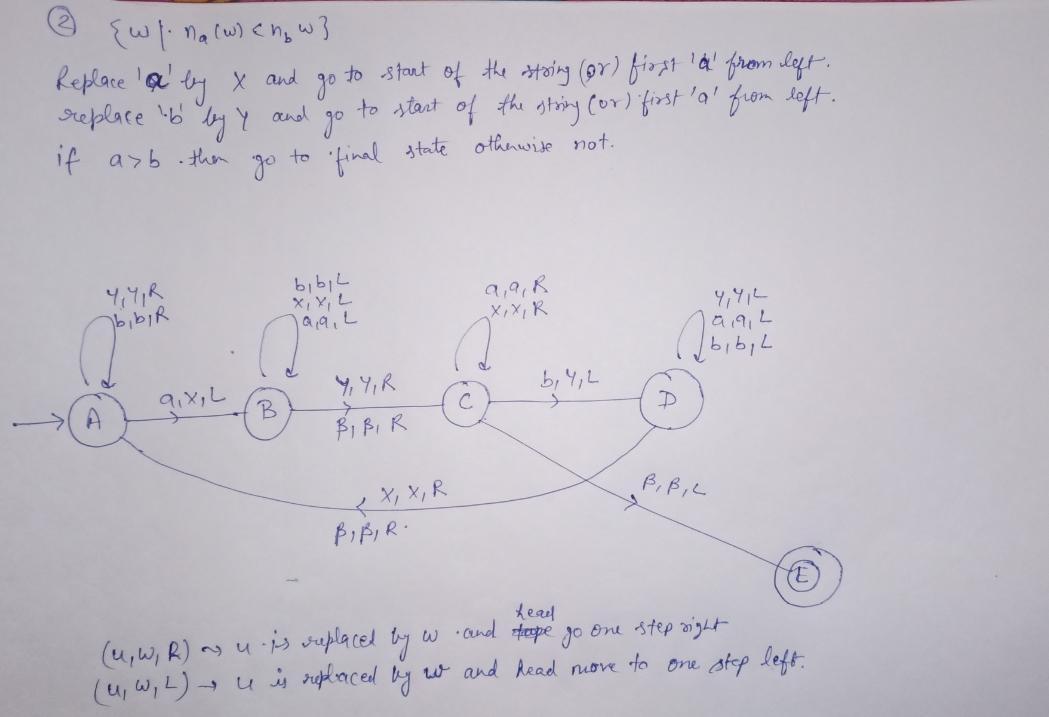 ② {w|. na(w) < nb w}
Replace 'a' by X and go to start of the string (or) first 'a' from left.
replace 'b' by Y and go to start of the string (or) first 'a' from left.
if a>b then go to final state otherwise not.
Y,Y,R
b,b,R
b,b,L
X,X,L
a,a,L
a,a,R
X,X,R
Y,Y,L
a,a,L
b,b,L
A
a,X,L
B
Y,Y,R
B,B,R
C
b,Y,L
D
X,X,R
B,B,R.
B,B,L
E
head
(u,w,R) → u is replaced by w and go one step right
(u,w,L) → u is replaced by w and head move to one step left.